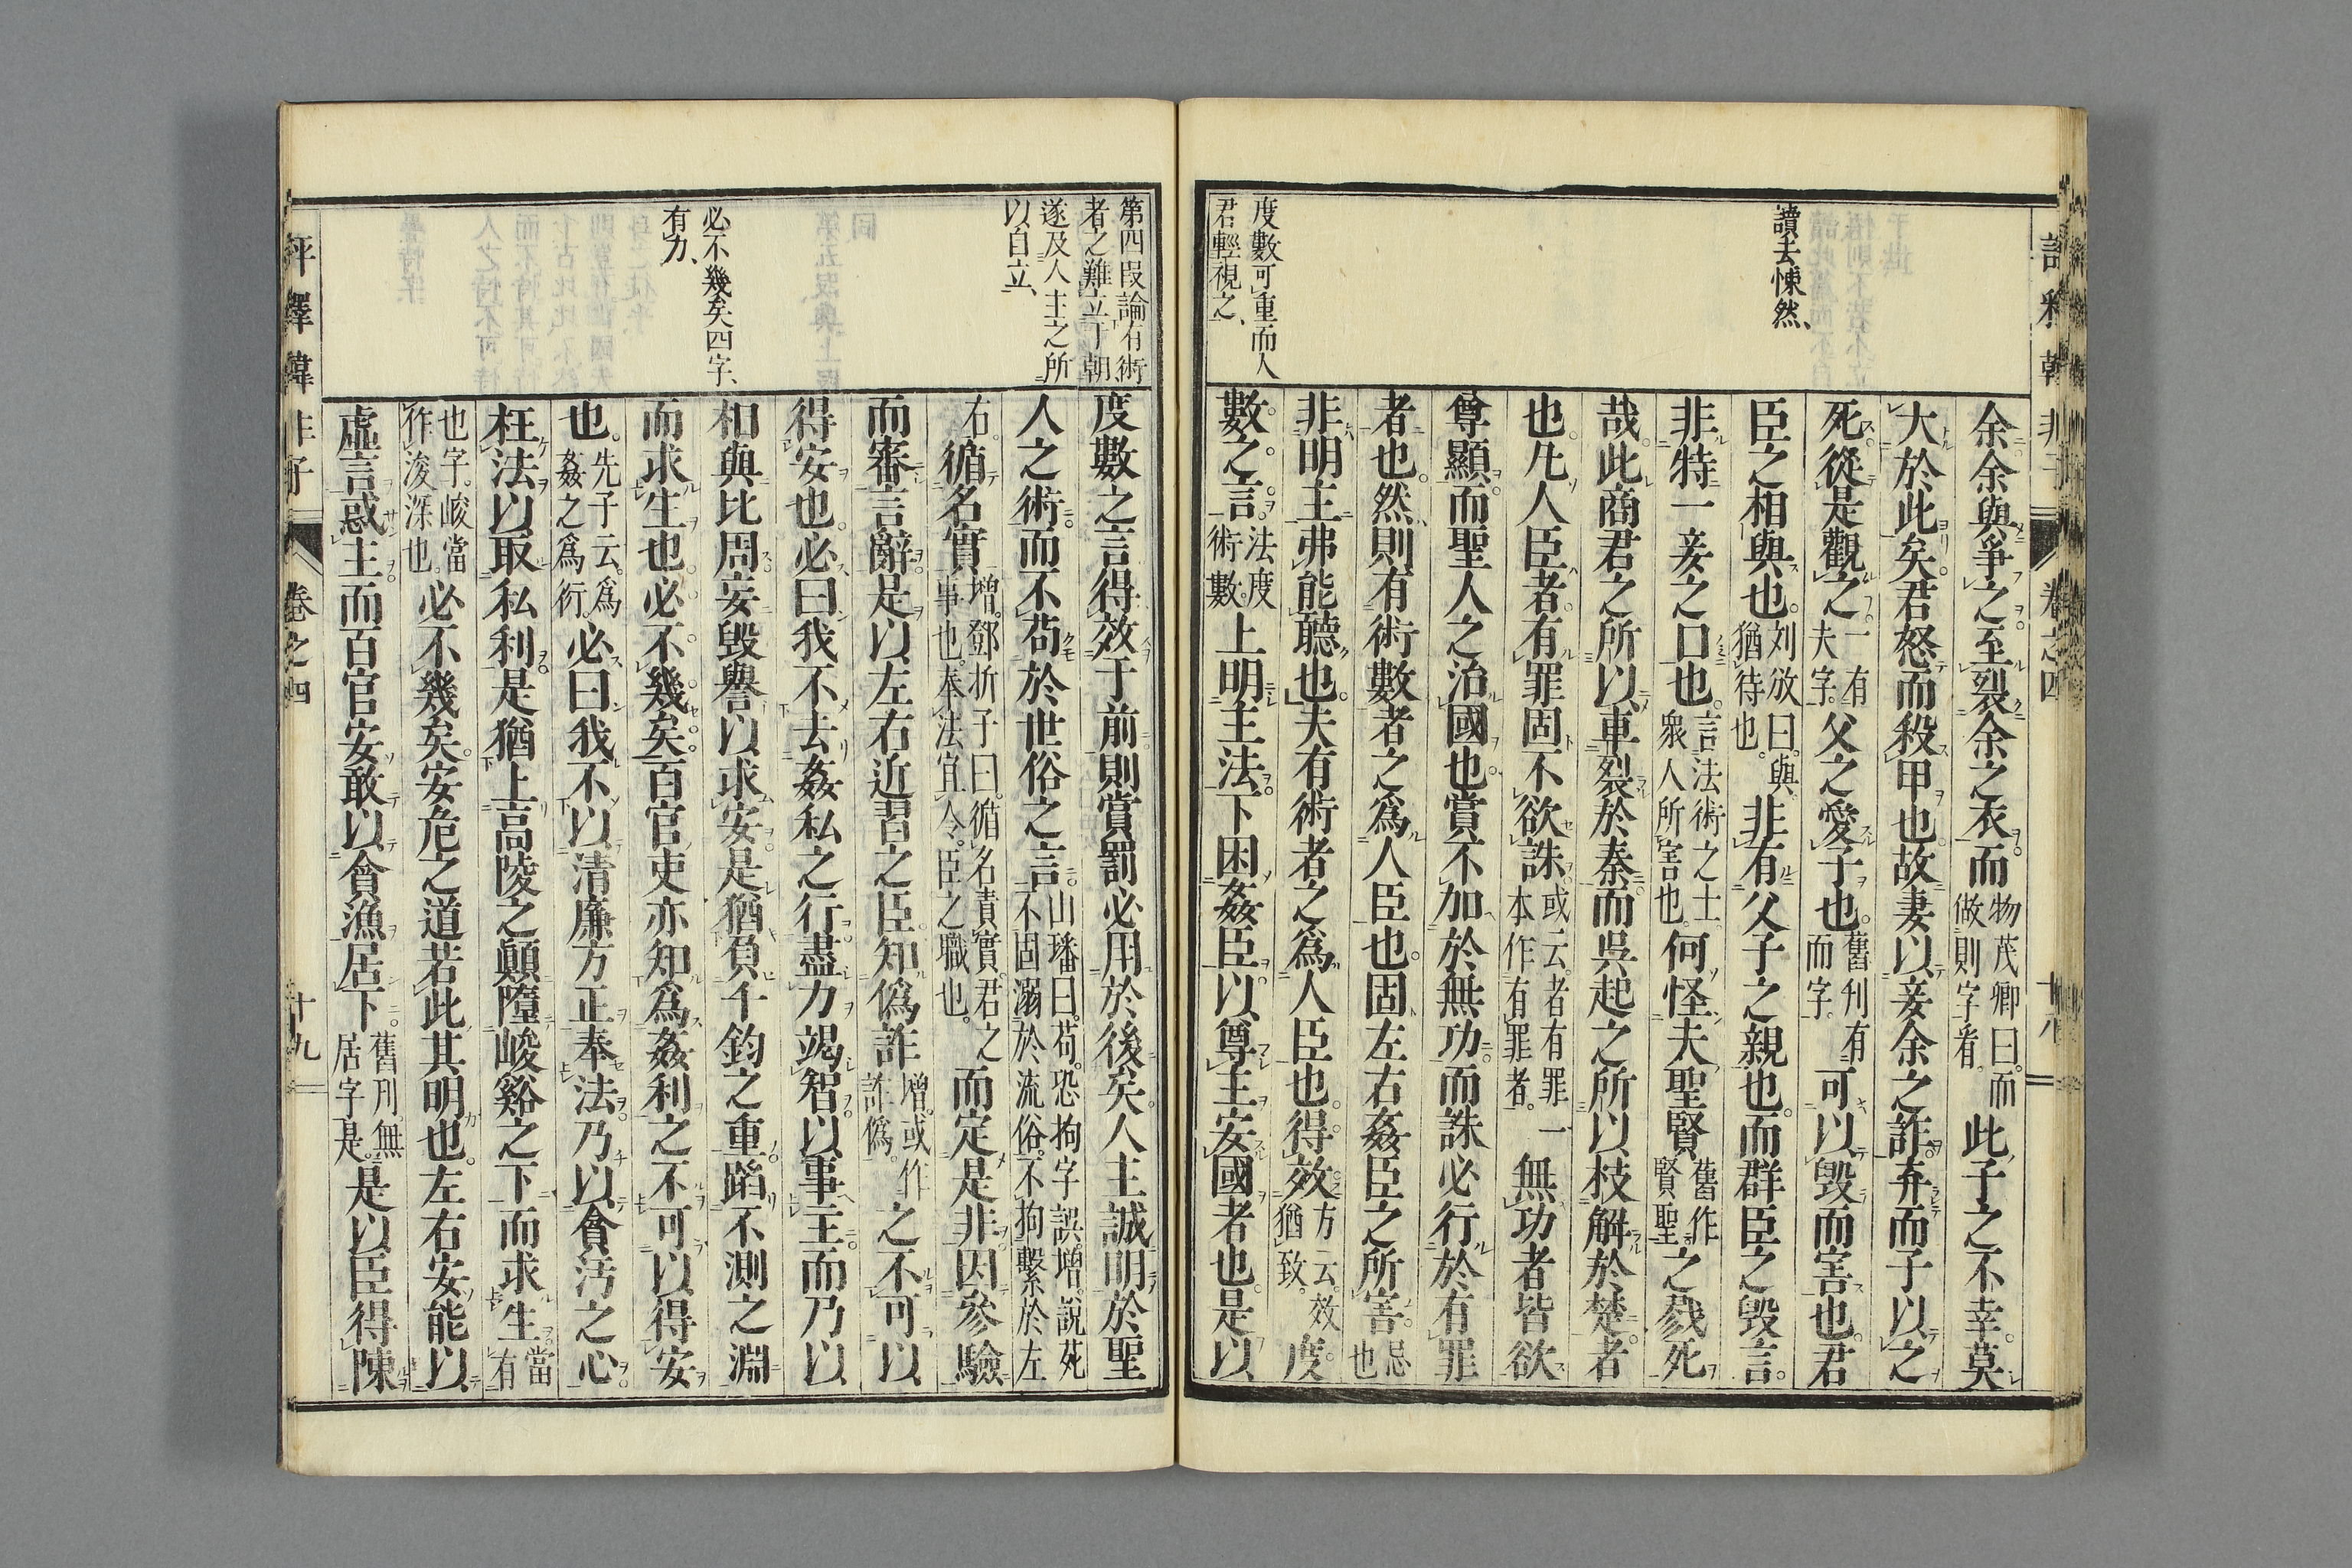 評釋韓非子
卷之四
十八
讀去悚然、
度數可重而人
君輕視之、
余余與爭之至裂余之衣而物茂卿曰而做則字看此子之不幸莫
大於此矣君怒而殺甲也故妻以妾余之詐弃而子以之
死從是觀之一有夫字父之愛子也舊刋有而字可以毀而害也君
臣之相與也刘放曰與猶待也非有父子之親也而群臣之毀言
非特一妾之口也言法術之士衆人所害也何怪夫聖賢舊作賢聖之戮死
哉此商君之所以車裂於秦而吳起之所以枝解於楚者
也凡人臣者有罪固不欲誅或云者有罪一本作有罪者無功者皆欲
尊顯而聖人之治國也賞不加於無功而誅必行於有罪
者也然則有術數者之爲人臣也固左右姦臣之所害忌也
非明主弗能聽也夫有術者之爲人臣也得效方云效猶致度
數之言法度術數上明主法下困姦臣以尊主安國者也是以
第四段論有術
者之難立于朝
遂及人主之所
以自立、
必不幾矣四字、
有力、
度數之言得效于前則賞罰必用於後矣人主誠明於聖
人之術而不苟於世俗之言山璠曰苟恐拘字誤增說苑不固溺於流俗不拘繫於左
右循名實增鄧折子曰循名責實君之事也奉法宣令臣之職也而定是非因參驗
而審言辭是以左右近習之臣知僞詐增或作詐僞之不可以
得安也必曰我不去姦私之行盡力竭智以事主而乃以
相與比周妄毀譽以求安是猶負千鈞之重蹈不測之淵
而求生也必不幾矣百官吏亦知爲姦利之不可以得安
也先子云爲姦之爲衍必曰我不以清廉方正奉法乃以貪汚之心
枉法以取私利是猶上高陵之顚墮峻谿之下而求生當有
也字峻當作浚深也必不幾矣安危之道若此其明也左右安能以
虛言惑主而百官安敢以貪漁居下舊刋無居字是是以臣得陳
評釋韓非子
卷之四
十九